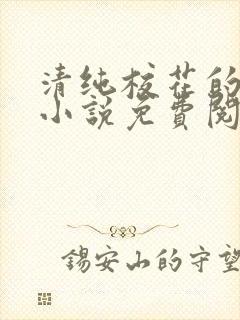 清纯校花的
小说免费阅
锡安山的守望